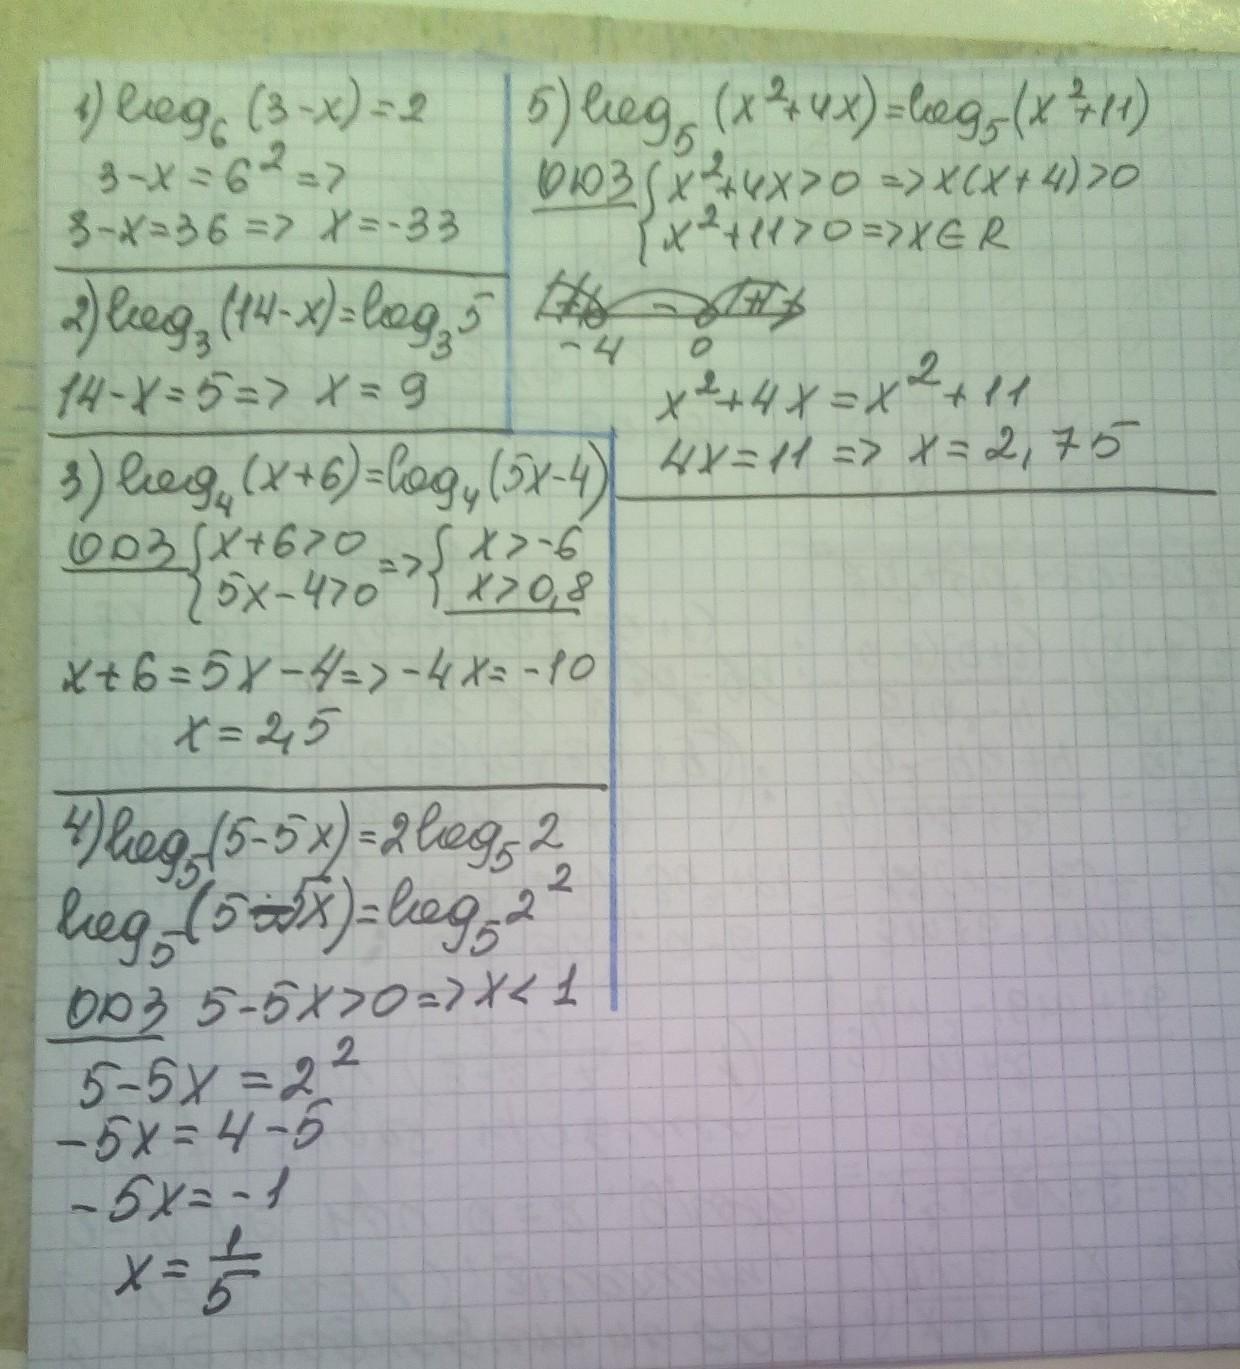 1) log₆ (3-x)=2
3-x=6² =>
3-x=36 => x=-33
2) log₃(14-x)=log₃5
14-x=5=> x=9
3) log₄(x+6)=log₄(5x-4)
ОДЗ { x+6>0 => { x>-6
5x-4>0 x>0,8
x+6=5x-4=>-4x=-10
x=2,5
4) log₅(5-5x)=2log₅2
log₅(5-5x)=log₅2²
ОДЗ 5-5x>0=>x<1
5-5x=2²
-5x=4-5
-5x=-1
x=1/5
5) log₅(x²+4x)=log₅(x²+11)
ОДЗ { x²+4x>0 =>x(x+4)>0
x²+11>0=>x∈R
+ - +
-4 0
x²+4x=x²+11
4x=11=> x=2,75